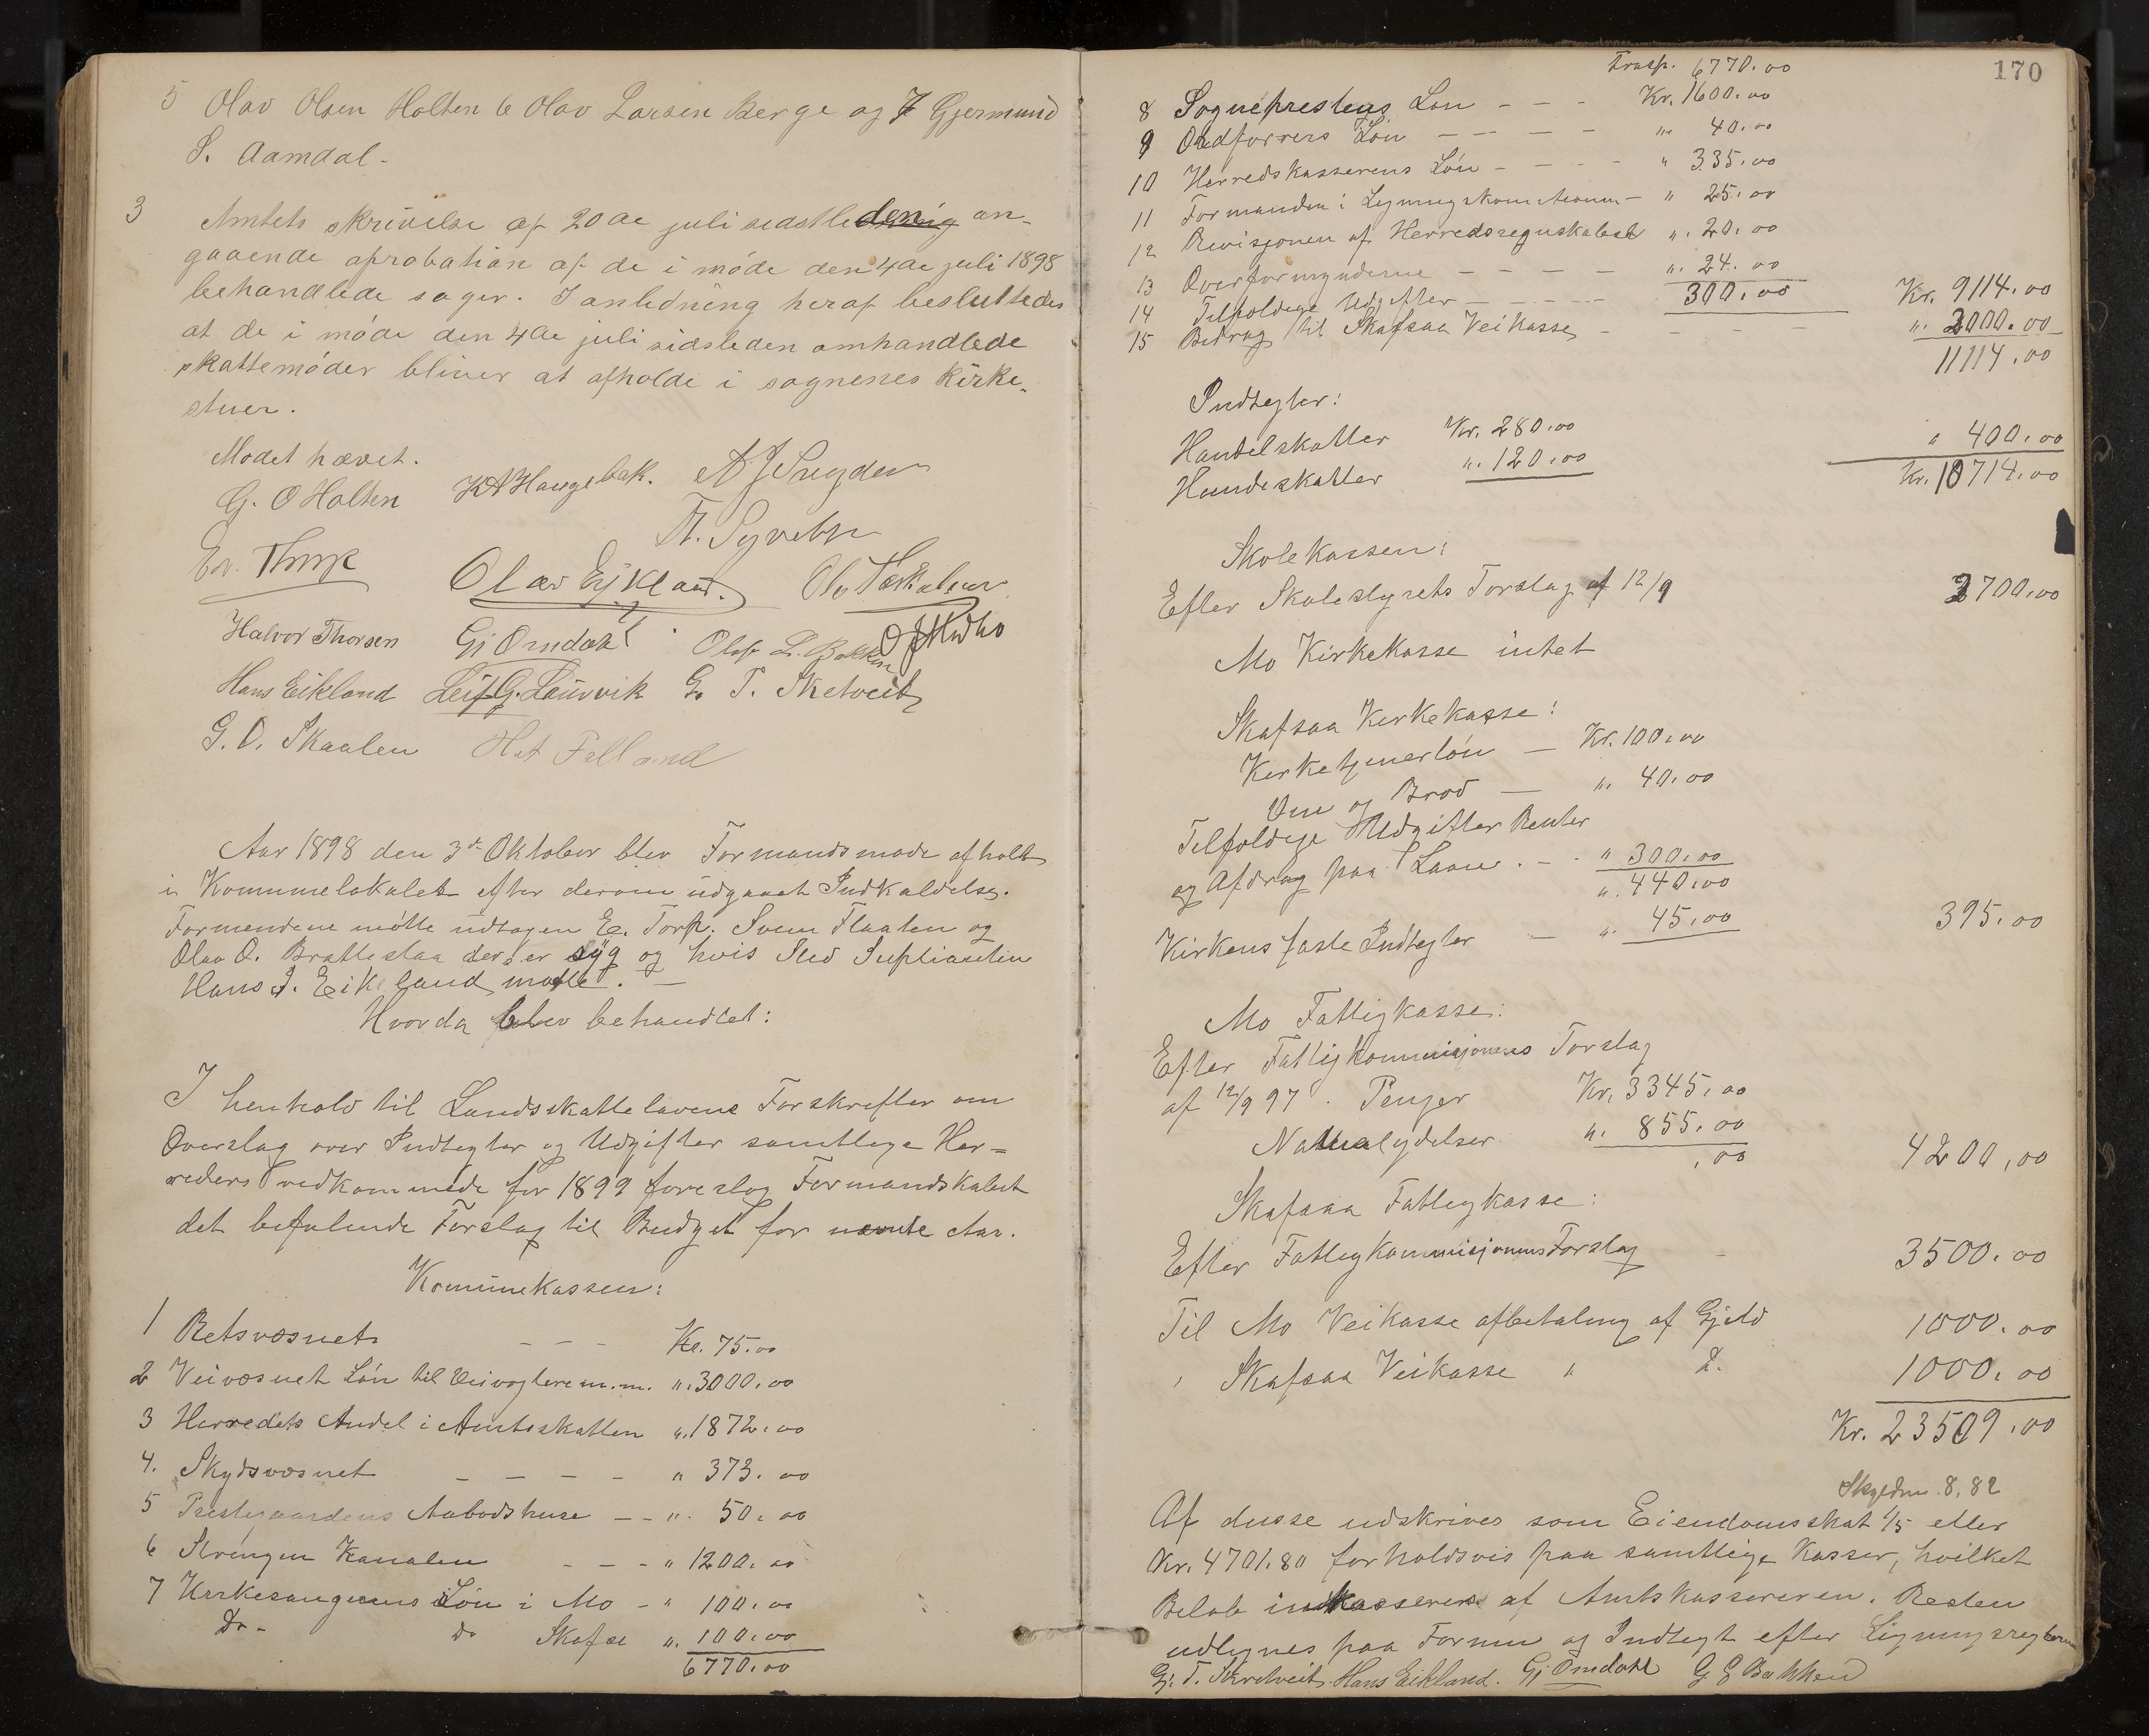 5 Olav Olsen Holten 6 Olav Larsen Berge og 7 Gjermund
S. Aamdal.
3 Amtets skrivelse af 20de juli sidstleden an-
gaaende aprobation af de i møde den 4de juli 1898
behandlede sager. I anledning heraf besluttedes
at de i møde den 4de juli sidsleden omhandlede
skattemøder bliver at afholde i sognenes kirke-
stuer.
Mødet hævet.
G. O Holten K A Haugebak.
Olav Eikland.
Halvor Thorsen Gj Omdahl Olaf L. Bakken
Hans Eikland Leif G. Lauvvik G. T. Sketveit
G. O. Skaalen Felland
Aar 1898 den 3de Oktober blev Formandsmøde afholdt
i Kommunelokalet efter derom udgaaet Indkaldelse.
Formendene møtte udtagen E. Torp. Svein Flaaten og
Olav O. Bratteslaa der er syg og hvis Sted Suplianten
Hans J. Eikeland møtte. —
Hvorda blev behandlet:
I henhold til Landsskattelovens Forskrifter om
Overslag over Indtegter og Udgifter samtlege Her-
reders vedkommede for 1899 foreslog Formandskabet
det befølende Forslag til Budget for nevnte Aar.
Kommunekassen:
1 Retsvæsnet - - - Kr. 75.00
2 Veivæsnet Løn til Veivogtere m.m. „ 3000.00
3 Herredets Andel i Amtsskatten „ 1872.00
4. Skydsvæsnet - - - - „ 373.00
5 Prestegaardens Aabodshuse - - „ 50.00
6 Strengen Kanalen - - - „ 1200.00
7 Kirkesangerens Løn i Mo - „ 100.00
Do - do Skafse „ 100.00
6770.00
170
Trasp. 6770.00
8 Sogneprestens Løn - - - Kr. 1600.00
9 Ordførers Løn - - - - „ 40.00
10 Herredskasserens Løn - - - - „ 335.00
11 Formanden i Ligningskomisionen - „ 25.00
12 Revisjonen af Herredsregnskabet „ 20.00
13 Overformynderne - - - - „ 24.00
14 Tilfoldige Udgifter - - - - 300.00 Kr. 9114.00
15 Bidrag til Skafsaa Veikasse - - - - „ 2000.00
11114.00
Indtegter:
Handelskatter Kr. 280.00
Hundeskatter „ 120.00 „ 400.00
Kr. 10714.00
Skolekassen:
Efter Skolestyrets Forslag af 12/9 2700.00
Mo Kirkekasse intet
Skafsaa Kirkekasse:
Kirketjenerløn — Kr. 100.00
Vin og Brød — „ 40.00
Tilfoldige Udgifter Renter
og Afdrag paa Laan. - - „ 300.00
„ 440.00
Kirkens faste Indtegter — „ 45.00 395.00
Mo Fattigkasse:
Efter Fattigkommisjonens Forslag
af 12/9 97. Penger Kr. 3345.00
Naturalydelser „ 855.00
,00 4200,00
Skafsaa Fattegkasse:
Efter Fattegkommisjonens Forslag - 3500.00
Til Mo Veikasse afbetaling af Gjeld 1000.00
„ Skafsaa Veikasse „ D. 1000.00
Kr. 23509.00
Skyldm. 8,82
Af dusse udskrives som Eiendomsskat 1/5 eller
Kr. 4701.80 forholdsvis paa samtlige Kasser, hvilket
Beløb inkasseres af Amtskassereren. Resten
udlignes paa Formue og Indtegt efter Ligningsreglerne
G. T. Skretveit. Hans Eikland. Gj Omdahl G G Bakken